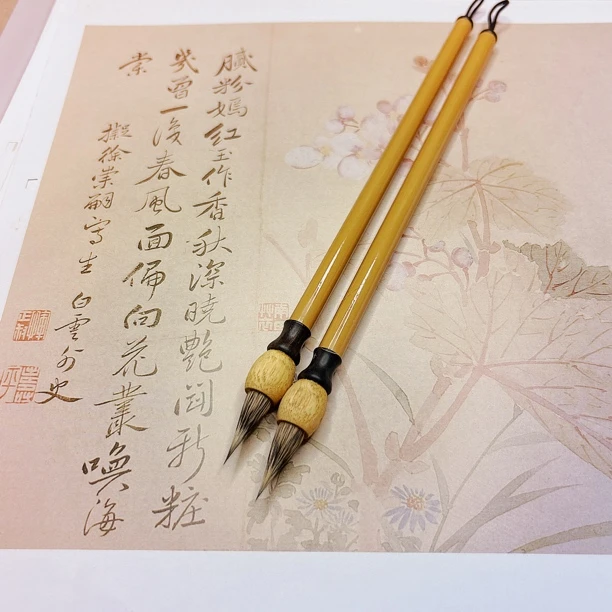 膩粉嫣紅玉作香秋深曉艷閗新粧
幾曾一春風面偏向花叢喚海
棠
擬徐崇嗣寫生
白雲外史